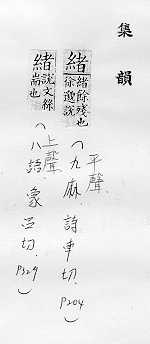 集韻
緒緒餘殘也
徐邈說
平聲
(九麻 詩車切. P204)
緒說文絲
耑也
上聲
(八語 象呂切. P329)